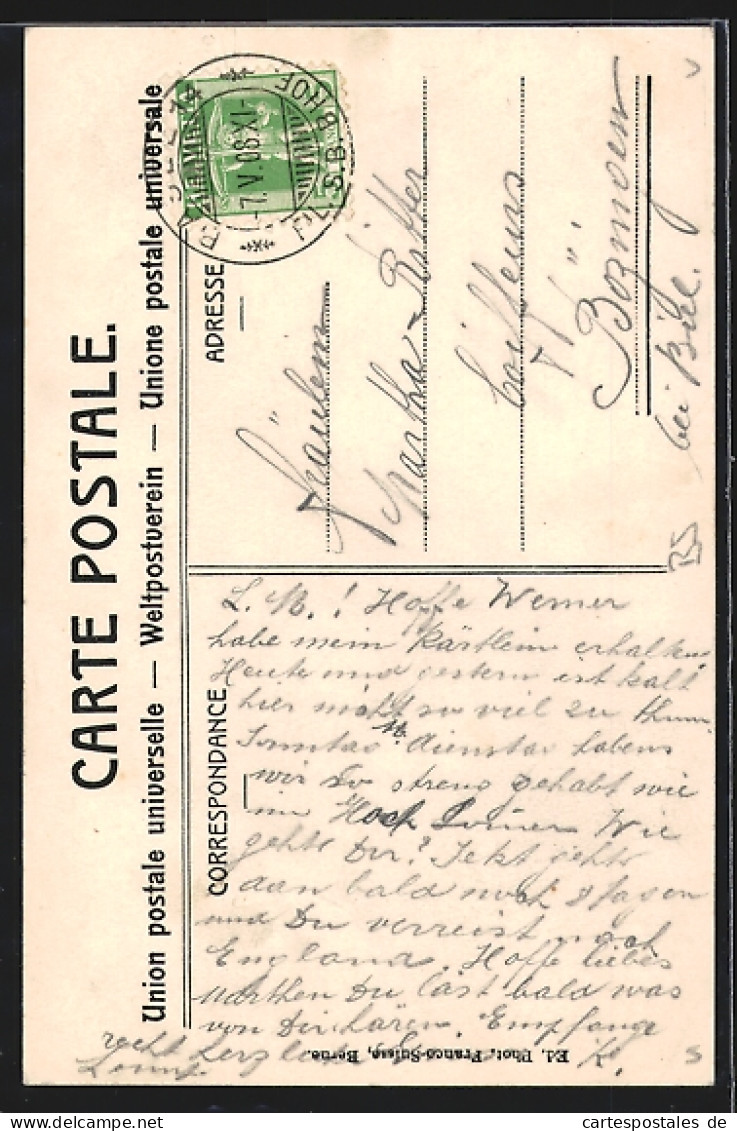 CARTE POSTALE.
Union postale universelle — Weltpostverein — Unione postale universale
CORRESPONDANCE
ADRESSE
-7. V. 08. XI-
Fräulein
Martha
Coiffeurs
Bözingen
bei Biel.
L. M. ! Hoffe Werner
habe mein Kärtlein erhalten
Heute und gestern ist halt
hier nicht so viel zu thun
Sonntag u. dienstag habens
wir so streng gehabt wie
im Hoch Sommer Wie
gehts Dir? Jetzt gehts
dan bald noch 8 tagen
und Du verreist nach
England. Hoffe liebes
Marthen Du läst bald was
von Dir hören. Empfange
recht herzliche
Ed. Phot. Franco-Suisse, Berne.
cartespostales de